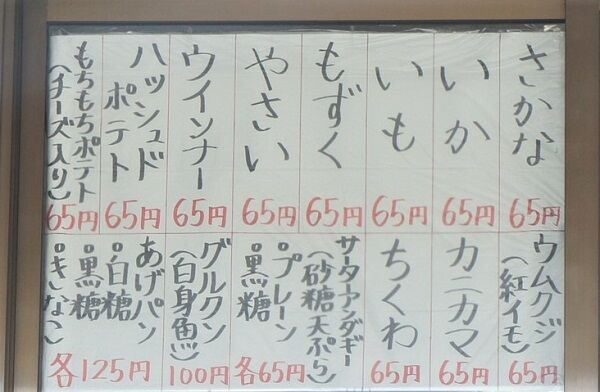 さかな
65円
いか
65円
いも
65円
もずく
65円
やさい
65円
ウインナー
65円
ハッシュド
ポテト
65円
もちもちポテト
(チーズ入り)
65円
ウムクジ
(紅イモ)
65円
カニカマ
65円
ちくわ
65円
サーターアンダギー
(砂糖天ぷら)
・プレーン
・黒糖
各65円
グルクン
(白身魚)
100円
あげパン
・白糖
・黒糖
・きなこ
各125円